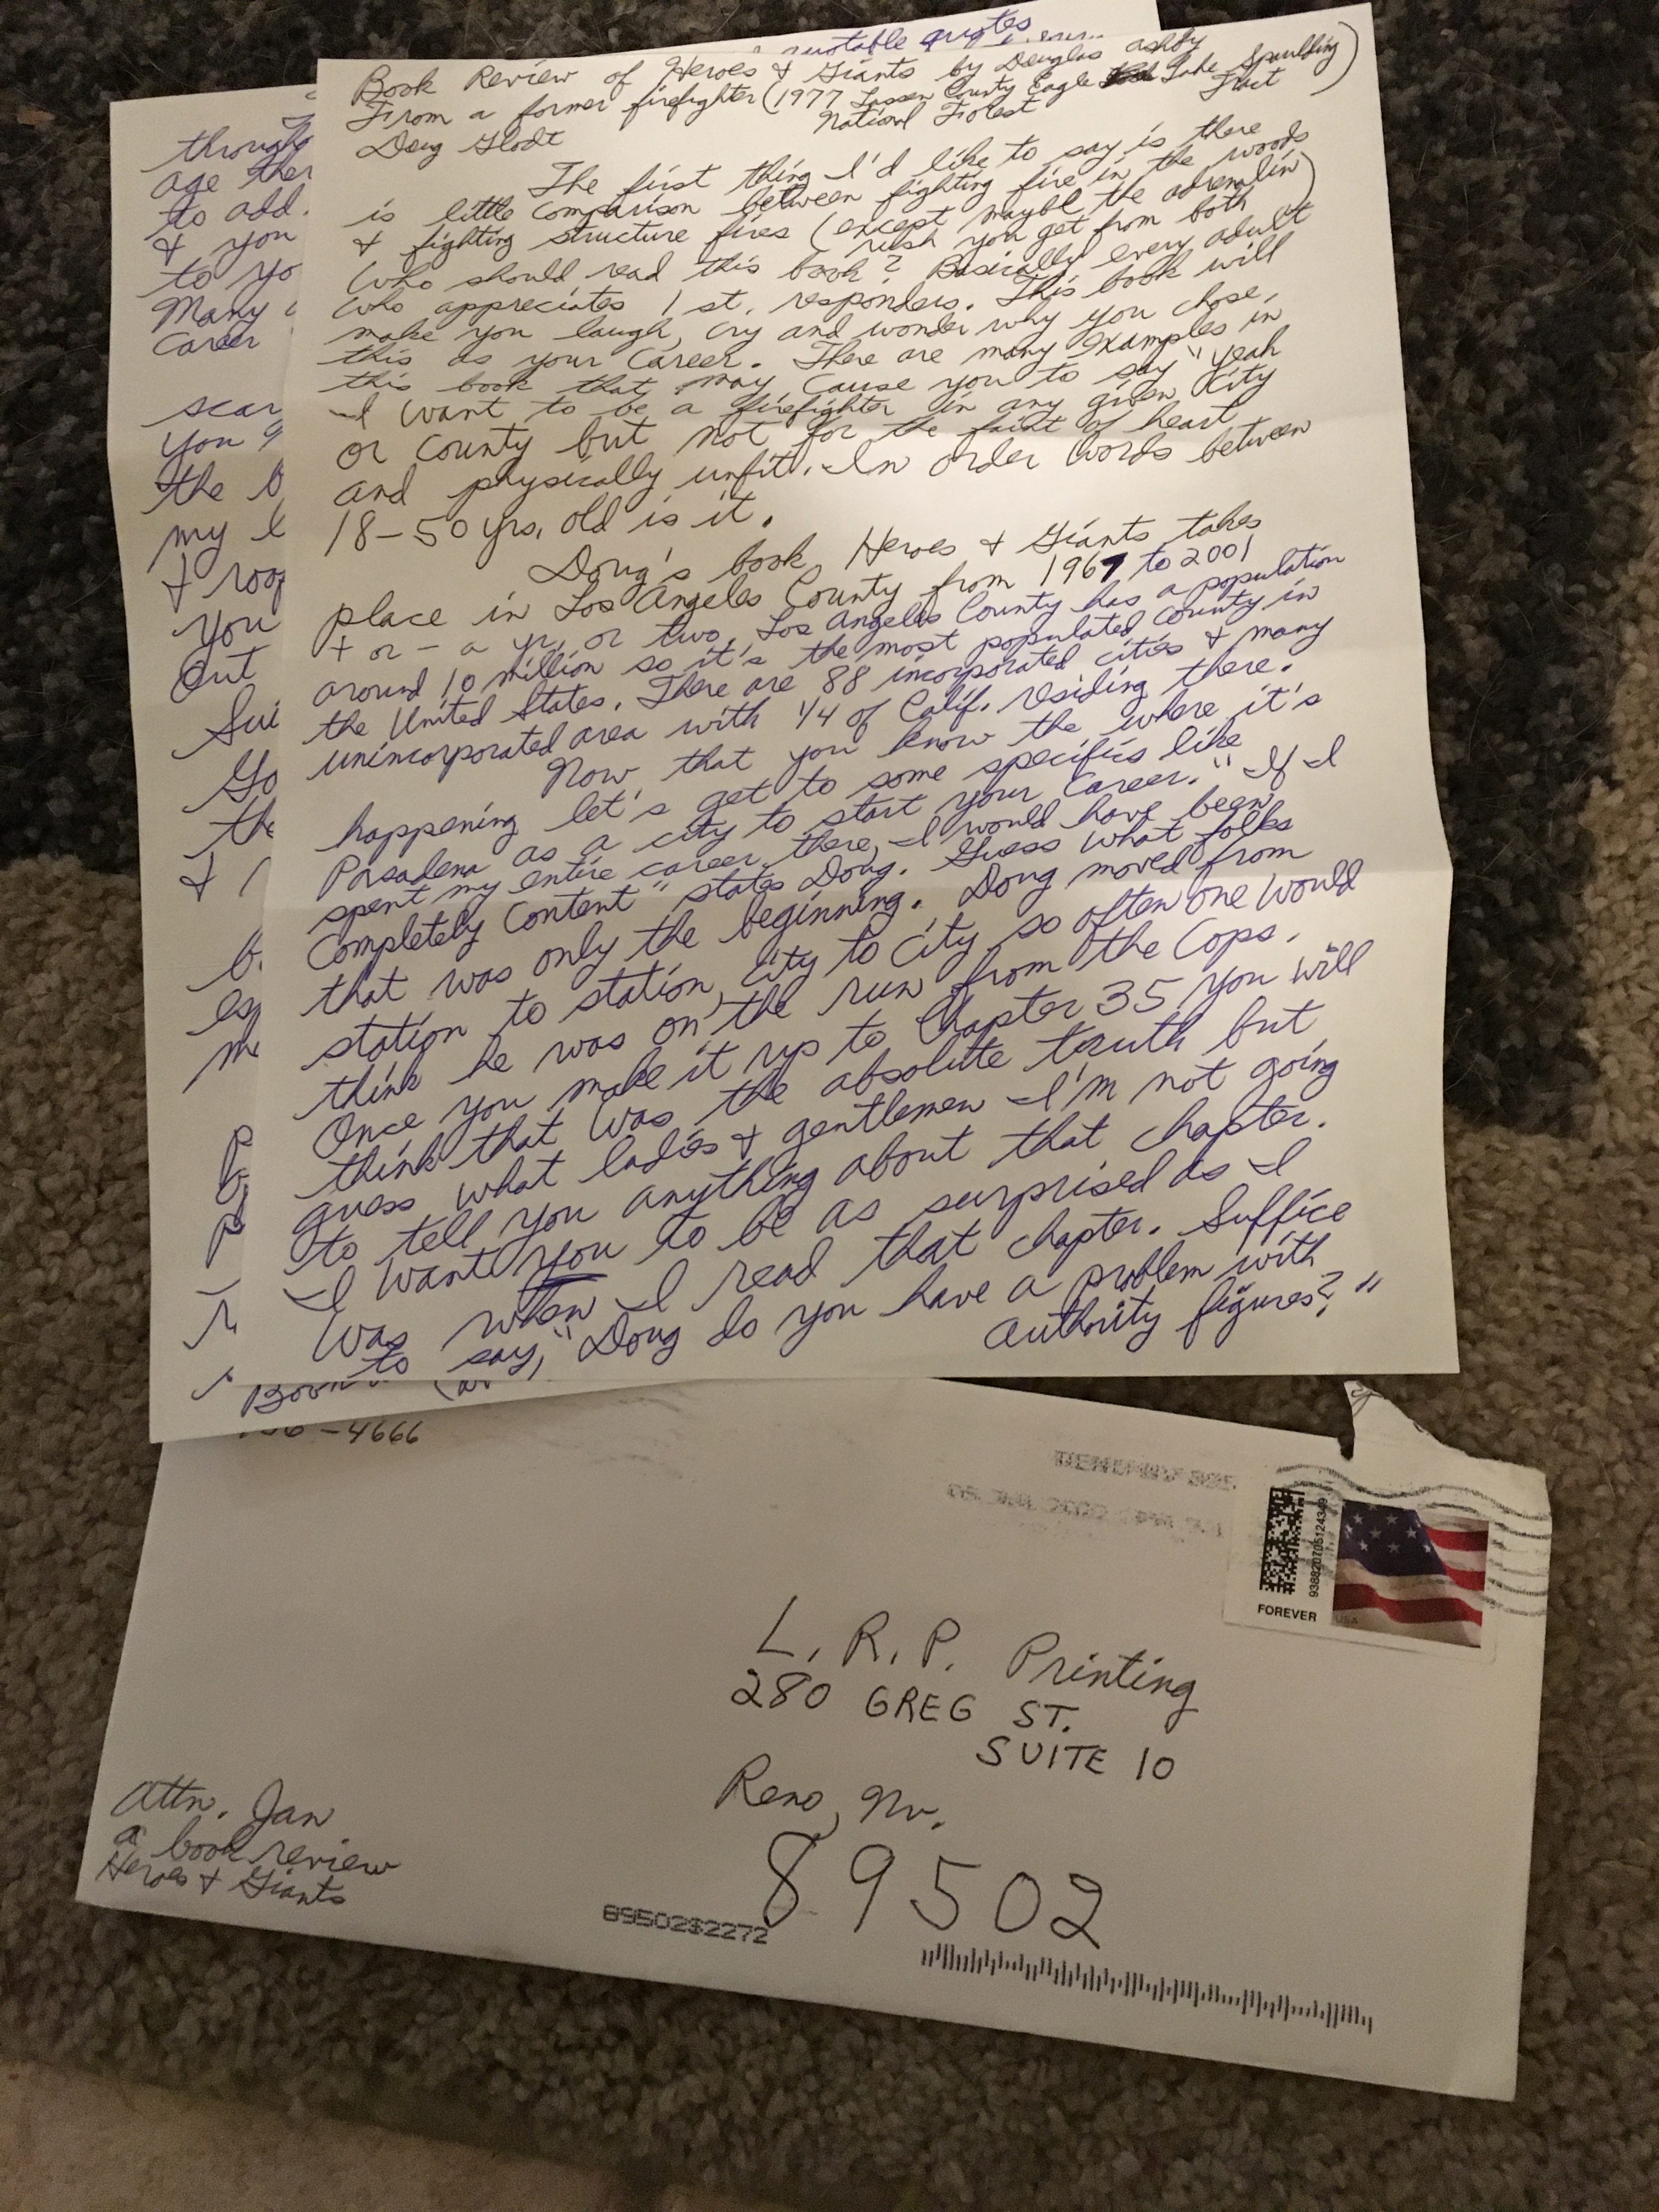 quotable quotes
Book Review of Heroes & Giants by Douglas Ashby
From a former firefighter (1977 Lassen County Eagle Lake Spaulding Tract)
National Forest
Doug
The first thing I'd like to say is there
is little comparison between fighting fire in the woods
& fighting structure fires (except maybe the adrenalin
rush you get from both)
Who should read this book? Basically every adult
who appreciates 1st. responders. This book will
make you laugh, cry and wonder why you chose
this as your career. There are many examples in
this book that may cause you to say "yeah
I want to be a firefighter in any given city
or county but not for the faint of heart
and physically unfit. In order words between
18-50 yrs. old is it.
Doug's book, Heroes & Giants takes
place in Los Angeles County from 1967 to 2001
+ or - a yr. or two. Los Angeles County has a population
around 10 million so it's the most populated county in
the United States. There are 88 incorporated cities & many
unincorporated area with 1/4 of Calif. residing there.
Now that you know the where it's
happening let's get to some specifics like
Pasadena as a city to start your career. "If I
spent my entire career there, I would have been
completely content" states Doug. Guess what folks
that was only the beginning. Doug moved from
station to station, city to city so often one would
think he was on the run from the Cops.
Once you make it up to Chapter 35 you will
think that was the absolute truth but
guess what ladies & gentlemen I'm not going
to tell you anything about that chapter.
I want you to be as surprised as I
was when I read that chapter. Suffice
to say, "Doug do you have a problem with
authority figures?"
age
to add.
& you
Many
Career
you
the
my
&
You
Out
the
&
-4666
FOREVER
USA
938820705124349
L.R.P. Printing
280 GREG ST.
SUITE 10
Reno, Nv.
89502
Attn. Jan
a book review
Heroes & Giants
89502$2272